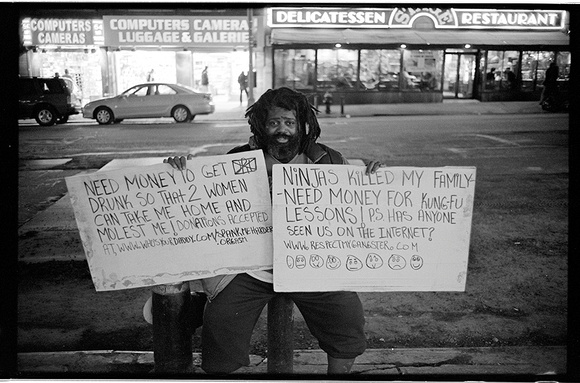 COMPUTERS CAMERA
COMPUTERS
CAMERAS
LUGGAGE & GALERIE
DELICATESSEN
RESTAURANT
NEED MONEY TO GET
DRUNK SO THAT 2 WOMEN
CAN TAKE ME HOME AND
MOLEST ME! DONATIONS ACCEPTED
AT WWW.WHOSYOURDADDY.COM/SPANKMEHARDER
.ORGISM
NiNJAS KILLED MY FAMILY-
-NEED MONEY FOR KUNG-FU
LESSONS! PS HAS ANYONE
SEEN US ON THE INTERNET?
WWW.RESPECTMYGANGSTER.COM